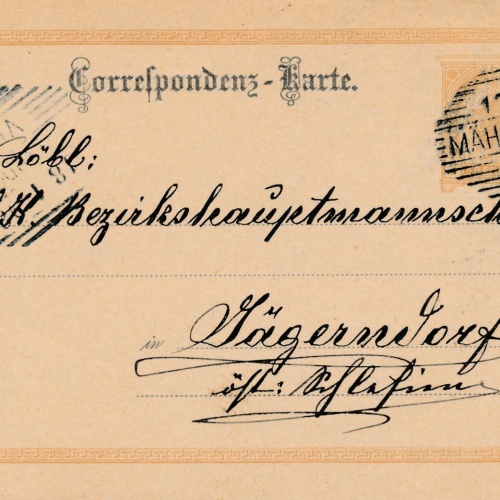 Correspondenz-Karte.
12
MÄH
Löbl:
K. Bezirkshauptmannsch
in Jägerndorf
öst: Schlesien